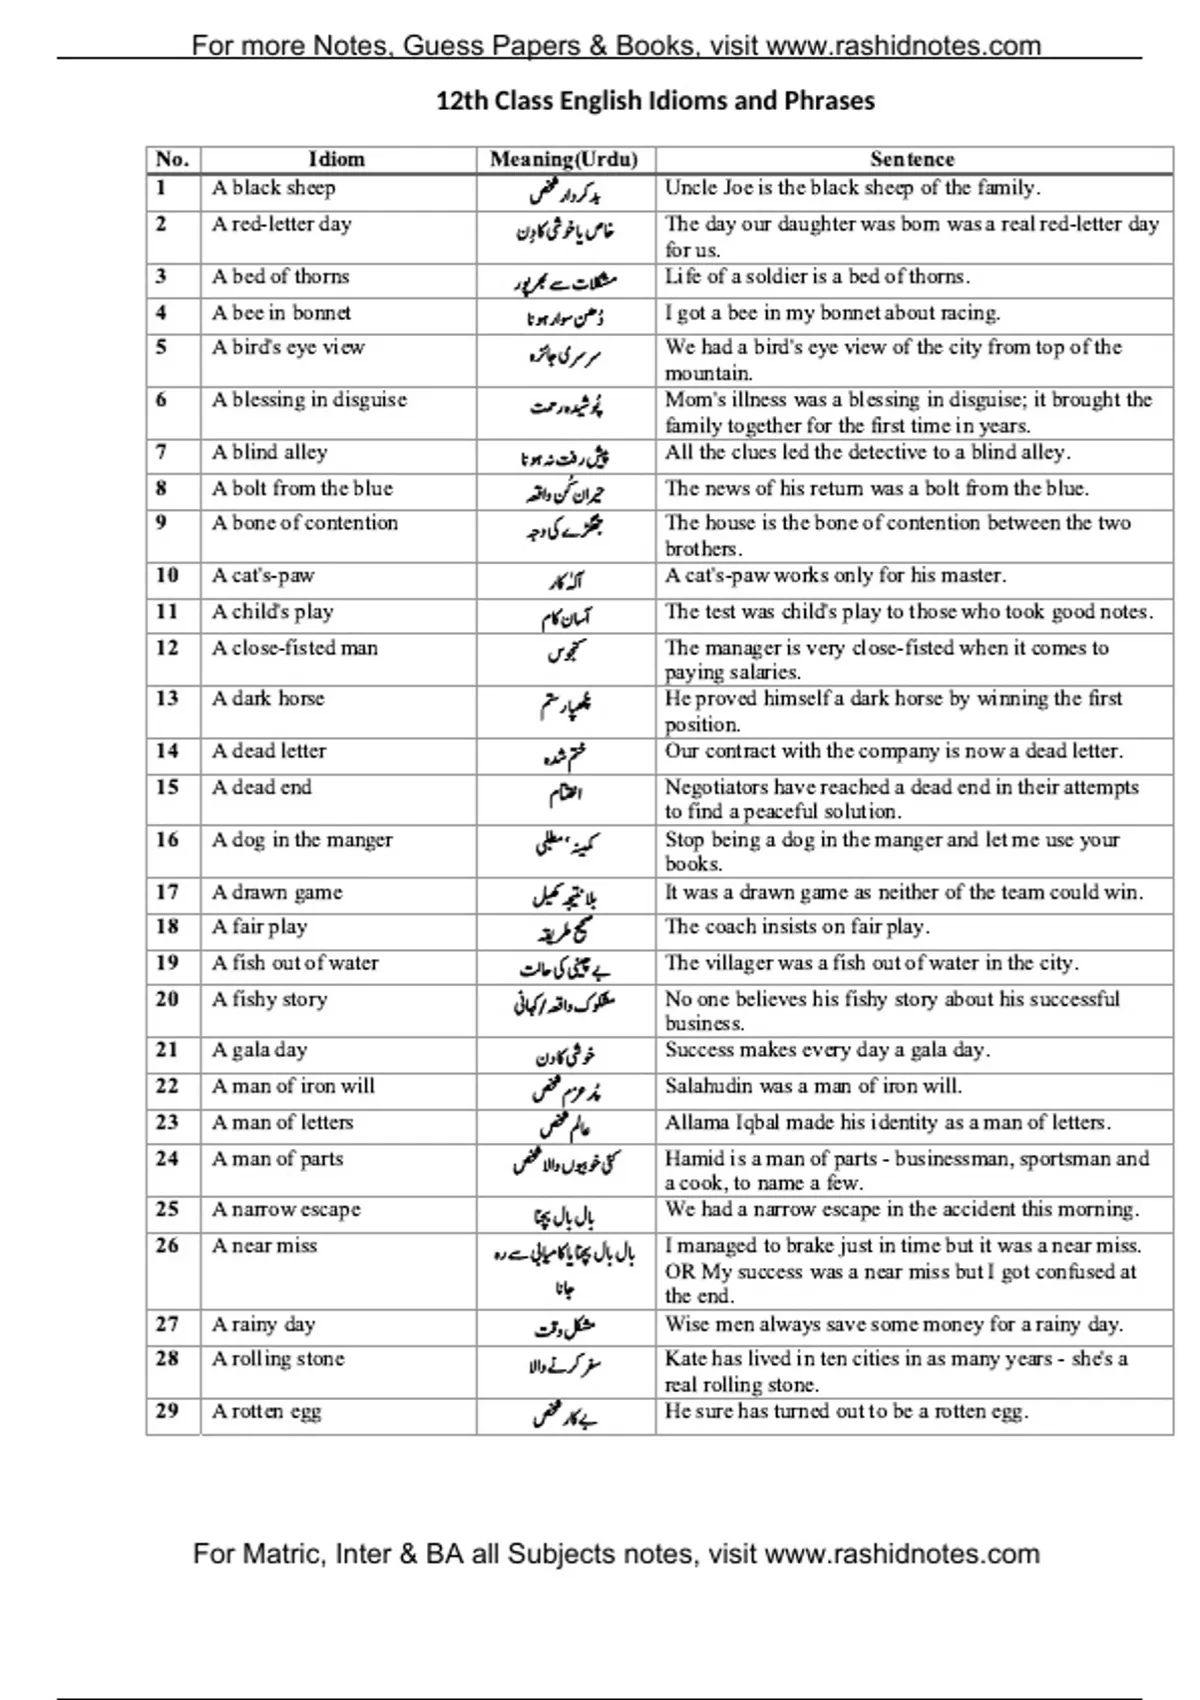 For more Notes, Guess Papers & Books, visit www.rashidnotes.com
12th Class English Idioms and Phrases
No. Idiom Meaning(Urdu) Sentence
1 A black sheep بدکردار شخص Uncle Joe is the black sheep of the family.
2 A red-letter day خاص یا خوشی کا دِن The day our daughter was born was a real red-letter day
for us.
3 A bed of thorns مشکلات سے بھرپور Life of a soldier is a bed of thorns.
4 A bee in bonnet دُھن سوار ہونا I got a bee in my bonnet about racing.
5 A bird's eye view سرسری جائزہ We had a bird's eye view of the city from top of the
mountain.
6 A blessing in disguise پُوشیدہ رحمت Mom's illness was a blessing in disguise; it brought the
family together for the first time in years.
7 A blind alley پیش رفت نہ ہونا All the clues led the detective to a blind alley.
8 A bolt from the blue حیران کُن واقعہ The news of his return was a bolt from the blue.
9 A bone of contention جھگڑے کی وجہ The house is the bone of contention between the two
brothers.
10 A cat's-paw آلہٰ کار A cat's-paw works only for his master.
11 A child's play آسان کام The test was child's play to those who took good notes.
12 A close-fisted man کنجوس The manager is very close-fisted when it comes to
paying salaries.
13 A dark horse چُھپا رستم He proved himself a dark horse by winning the first
position.
14 A dead letter ختم شدہ Our contract with the company is now a dead letter.
15 A dead end اختتام Negotiators have reached a dead end in their attempts
to find a peaceful solution.
16 A dog in the manger کمینہ، مطلبی Stop being a dog in the manger and let me use your
books.
17 A drawn game بلا نتیجہ کھیل It was a drawn game as neither of the team could win.
18 A fair play صحیح طریقہ The coach insists on fair play.
19 A fish out of water بے چینی کی حالت The villager was a fish out of water in the city.
20 A fishy story مشکوک واقعہ/کہانی No one believes his fishy story about his successful
business.
21 A gala day خوشی کا دن Success makes every day a gala day.
22 A man of iron will پُر عزم شخص Salahudin was a man of iron will.
23 A man of letters عالم شخص Allama Iqbal made his identity as a man of letters.
24 A man of parts کئی خوبیوں والا شخص Hamid is a man of parts - businessman, sportsman and
a cook, to name a few.
25 A narrow escape بال بال بچنا We had a narrow escape in the accident this morning.
26 A near miss بال بال بچنا یا کامیابی سے رہ I managed to brake just in time but it was a near miss.
جانا OR My success was a near miss but I got confused at
the end.
27 A rainy day مشکل وقت Wise men always save some money for a rainy day.
28 A rolling stone سفر کرنے والا Kate has lived in ten cities in as many years - she's a
real rolling stone.
29 A rotten egg بے کار شخص He sure has turned out to be a rotten egg.
For Matric, Inter & BA all Subjects notes, visit www.rashidnotes.com